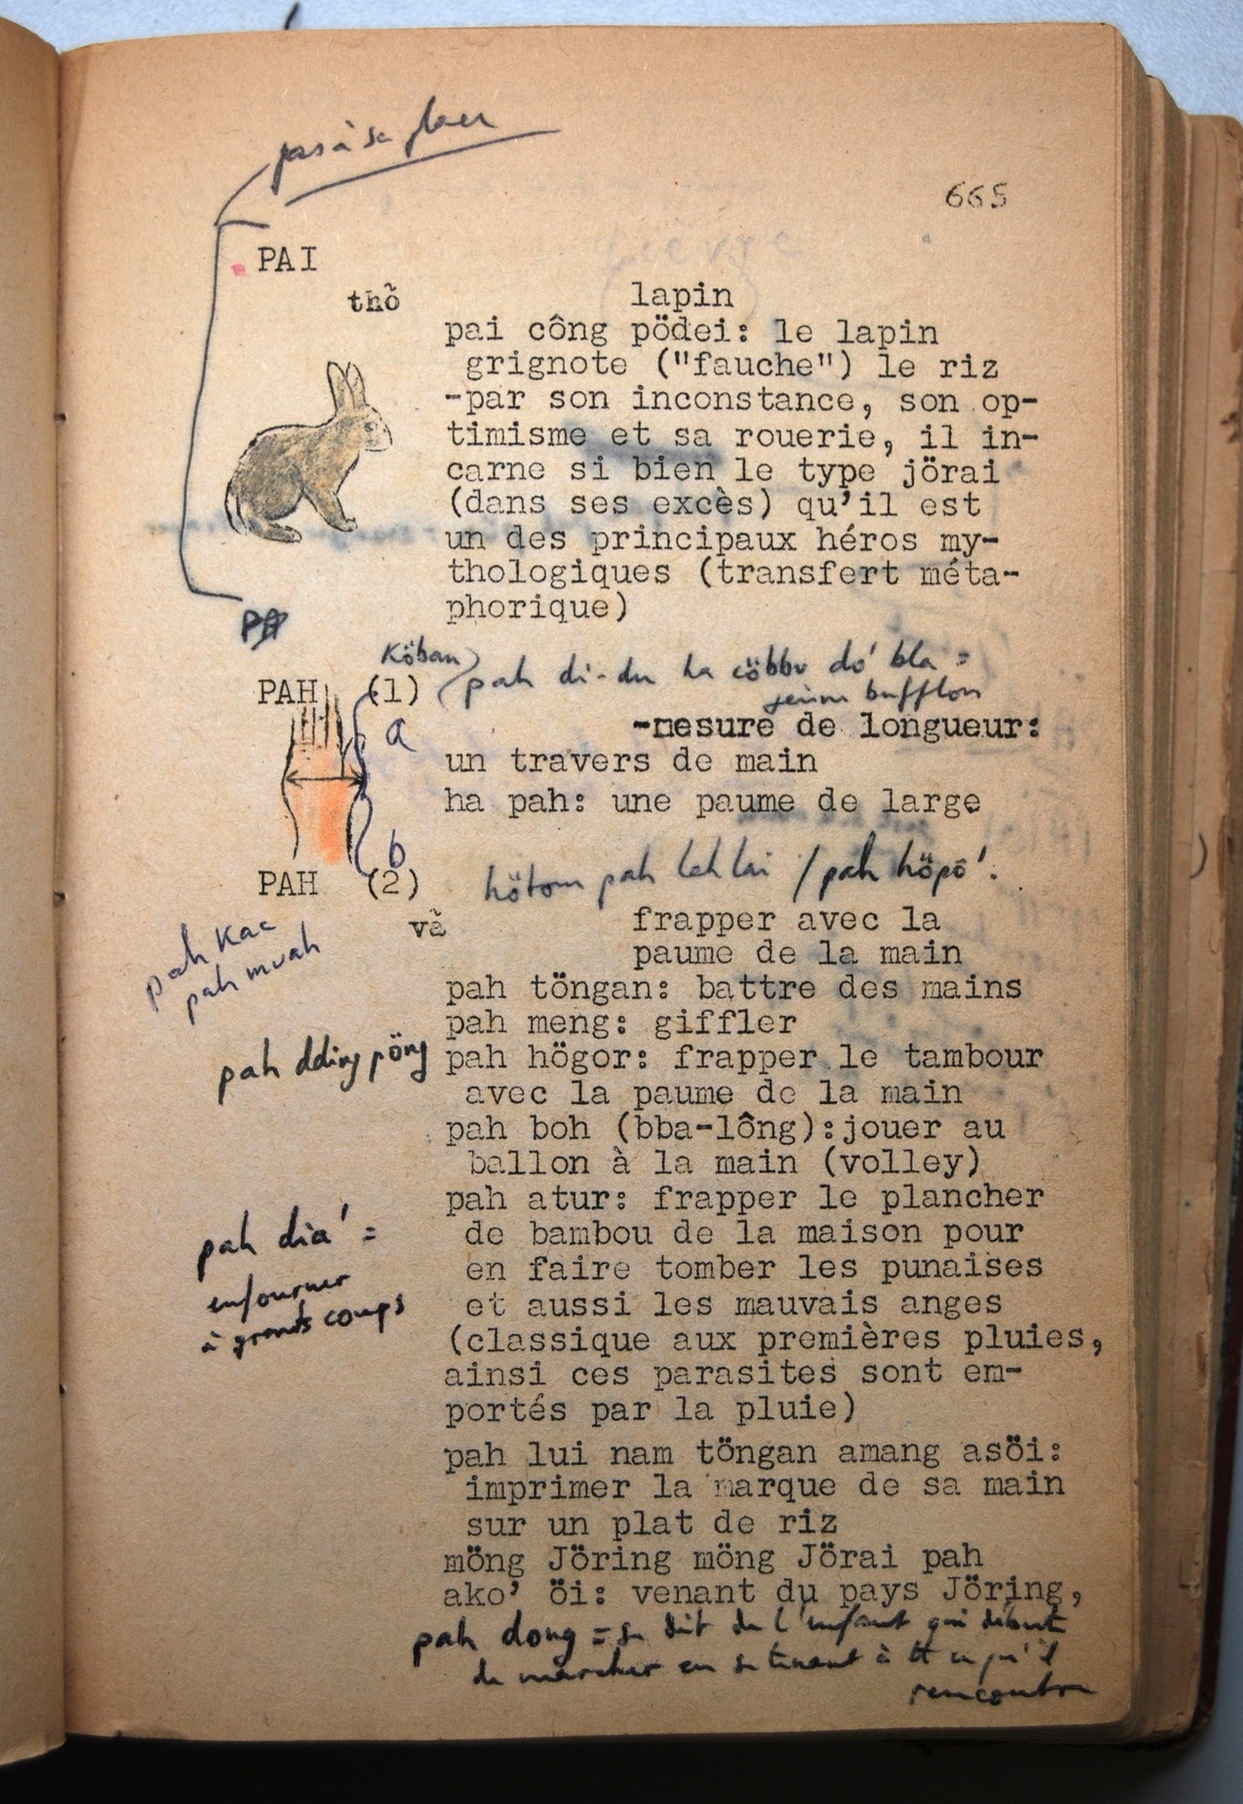 pas à sa place
665
PAI
thõ lapin
pai công pödei: le lapin
grignote ("fauche") le riz
-par son inconstance, son op-
timisme et sa rouerie, il in-
carne si bien le type jörai
(dans ses excès) qu'il est
un des principaux héros my-
thologiques (transfert méta-
phorique)
Köban
PAH (1) pah di-du ha cöbbu dó bla =
jeune bufflon
a
-mesure de longueur:
un travers de main
ha pah: une paume de large
b
PAH (2) hötom pah leh lai / pah höpô'.
vã frapper avec la
paume de la main
pah kac
pah muah
pah töngan: battre des mains
pah meng: giffler
pah dding pöng
pah högor: frapper le tambour
avec la paume de la main
pah boh (bba-lông):jouer au
ballon à la main (volley)
pah atur: frapper le plancher
de bambou de la maison pour
en faire tomber les punaises
et aussi les mauvais anges
(classique aux premières pluies,
ainsi ces parasites sont em-
portés par la pluie)
pah dia' =
enfourner
à grands coups
pah lui nam töngan amang asöi:
imprimer la marque de sa main
sur un plat de riz
möng Jöring möng Jörai pah
ako' öi: venant du pays Jöring,
pah dong = se dit de l'enfant qui débute
de marcher en se tenant à tt ce qu'il
rencontre